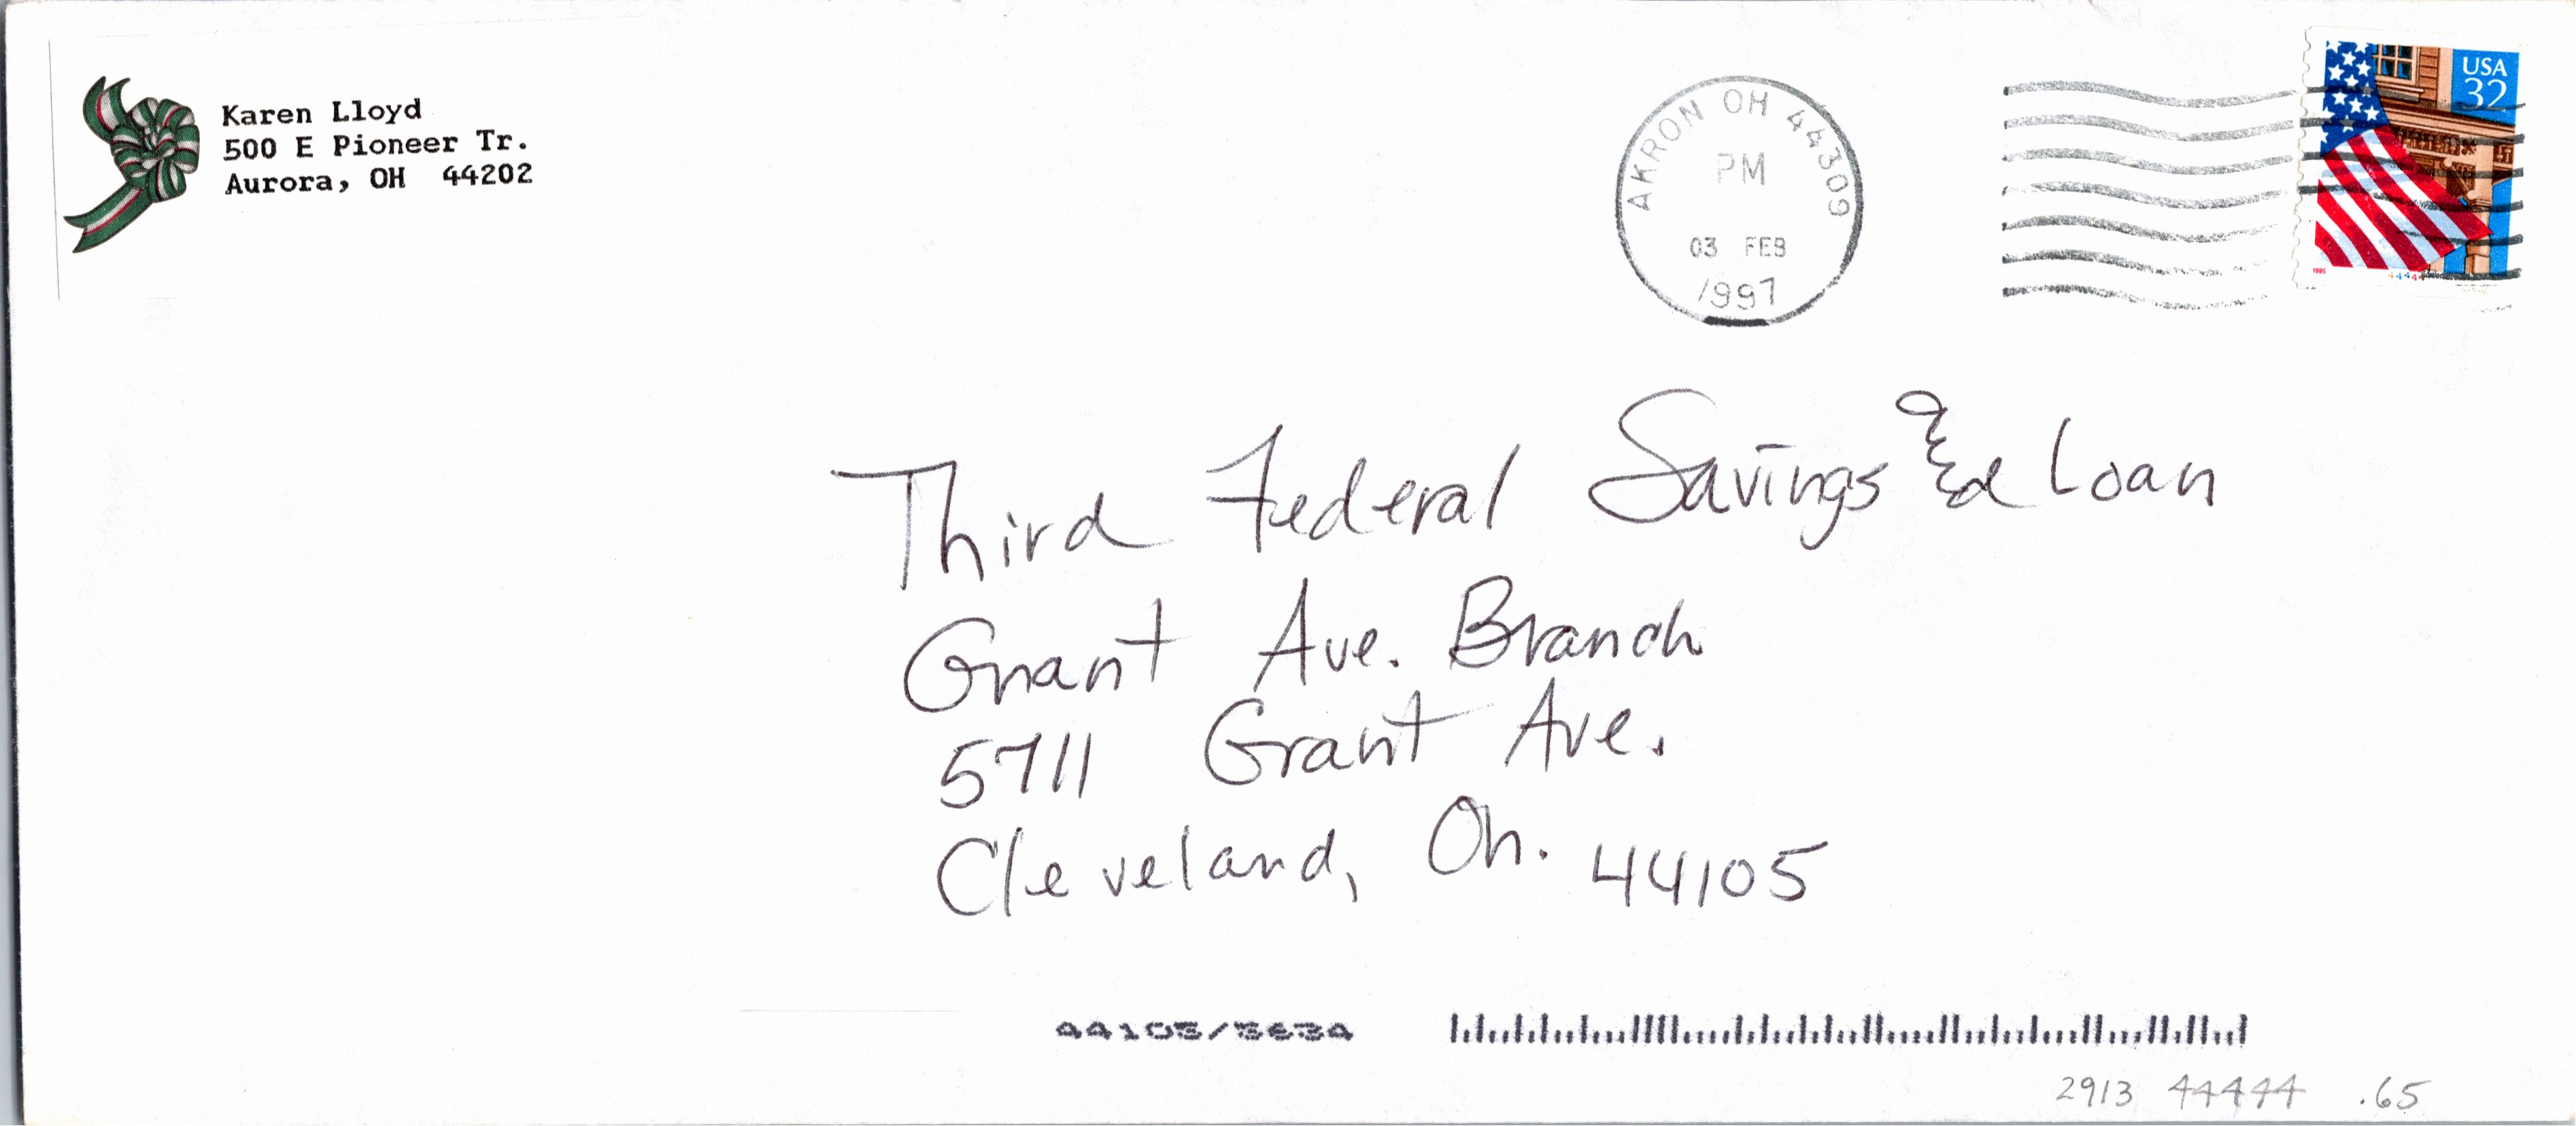 Karen Lloyd
500 E Pioneer Tr.
Aurora, OH 44202
AKRON OH 44309
PM
03 FEB
1997
USA
32
1995
44444
Third Federal Savings & Loan
Grant Ave. Branch
5711 Grant Ave.
Cleveland, Oh. 44105
44105/3634
2913 44444 .65